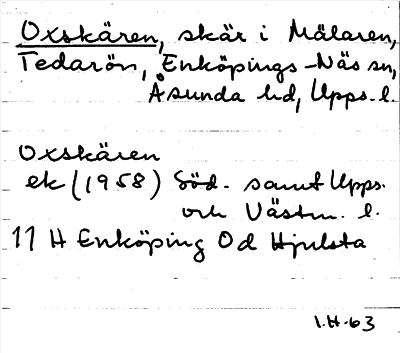 Oxskären, skär i Mälaren,
Tedarön, Enköpings-Näs sn,
Åsunda hd, Upps. l.
Oxskären
ek (1958) Söd. samt Upps.
och Västm. l.
11 H Enköping Od Hjulsta
I.H-63